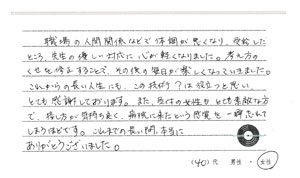 職場の人間関係などで体調が悪くなり、受診した
ところ、先生の優しい対応に心が軽くなりました。考え方の
くせを修正することで、その後の毎日が楽しくなっていきました。
これからの長い人生にも、この技術?は役立つと思い
とても感謝しております。また、受付の女性がとても素敵な方
で、接し方が気持ち良く、病院に来たという感覚を一瞬忘れて
しまうほどです。これまでの長い間、本当に
ありがとうございました。
(40)代 男性・女性